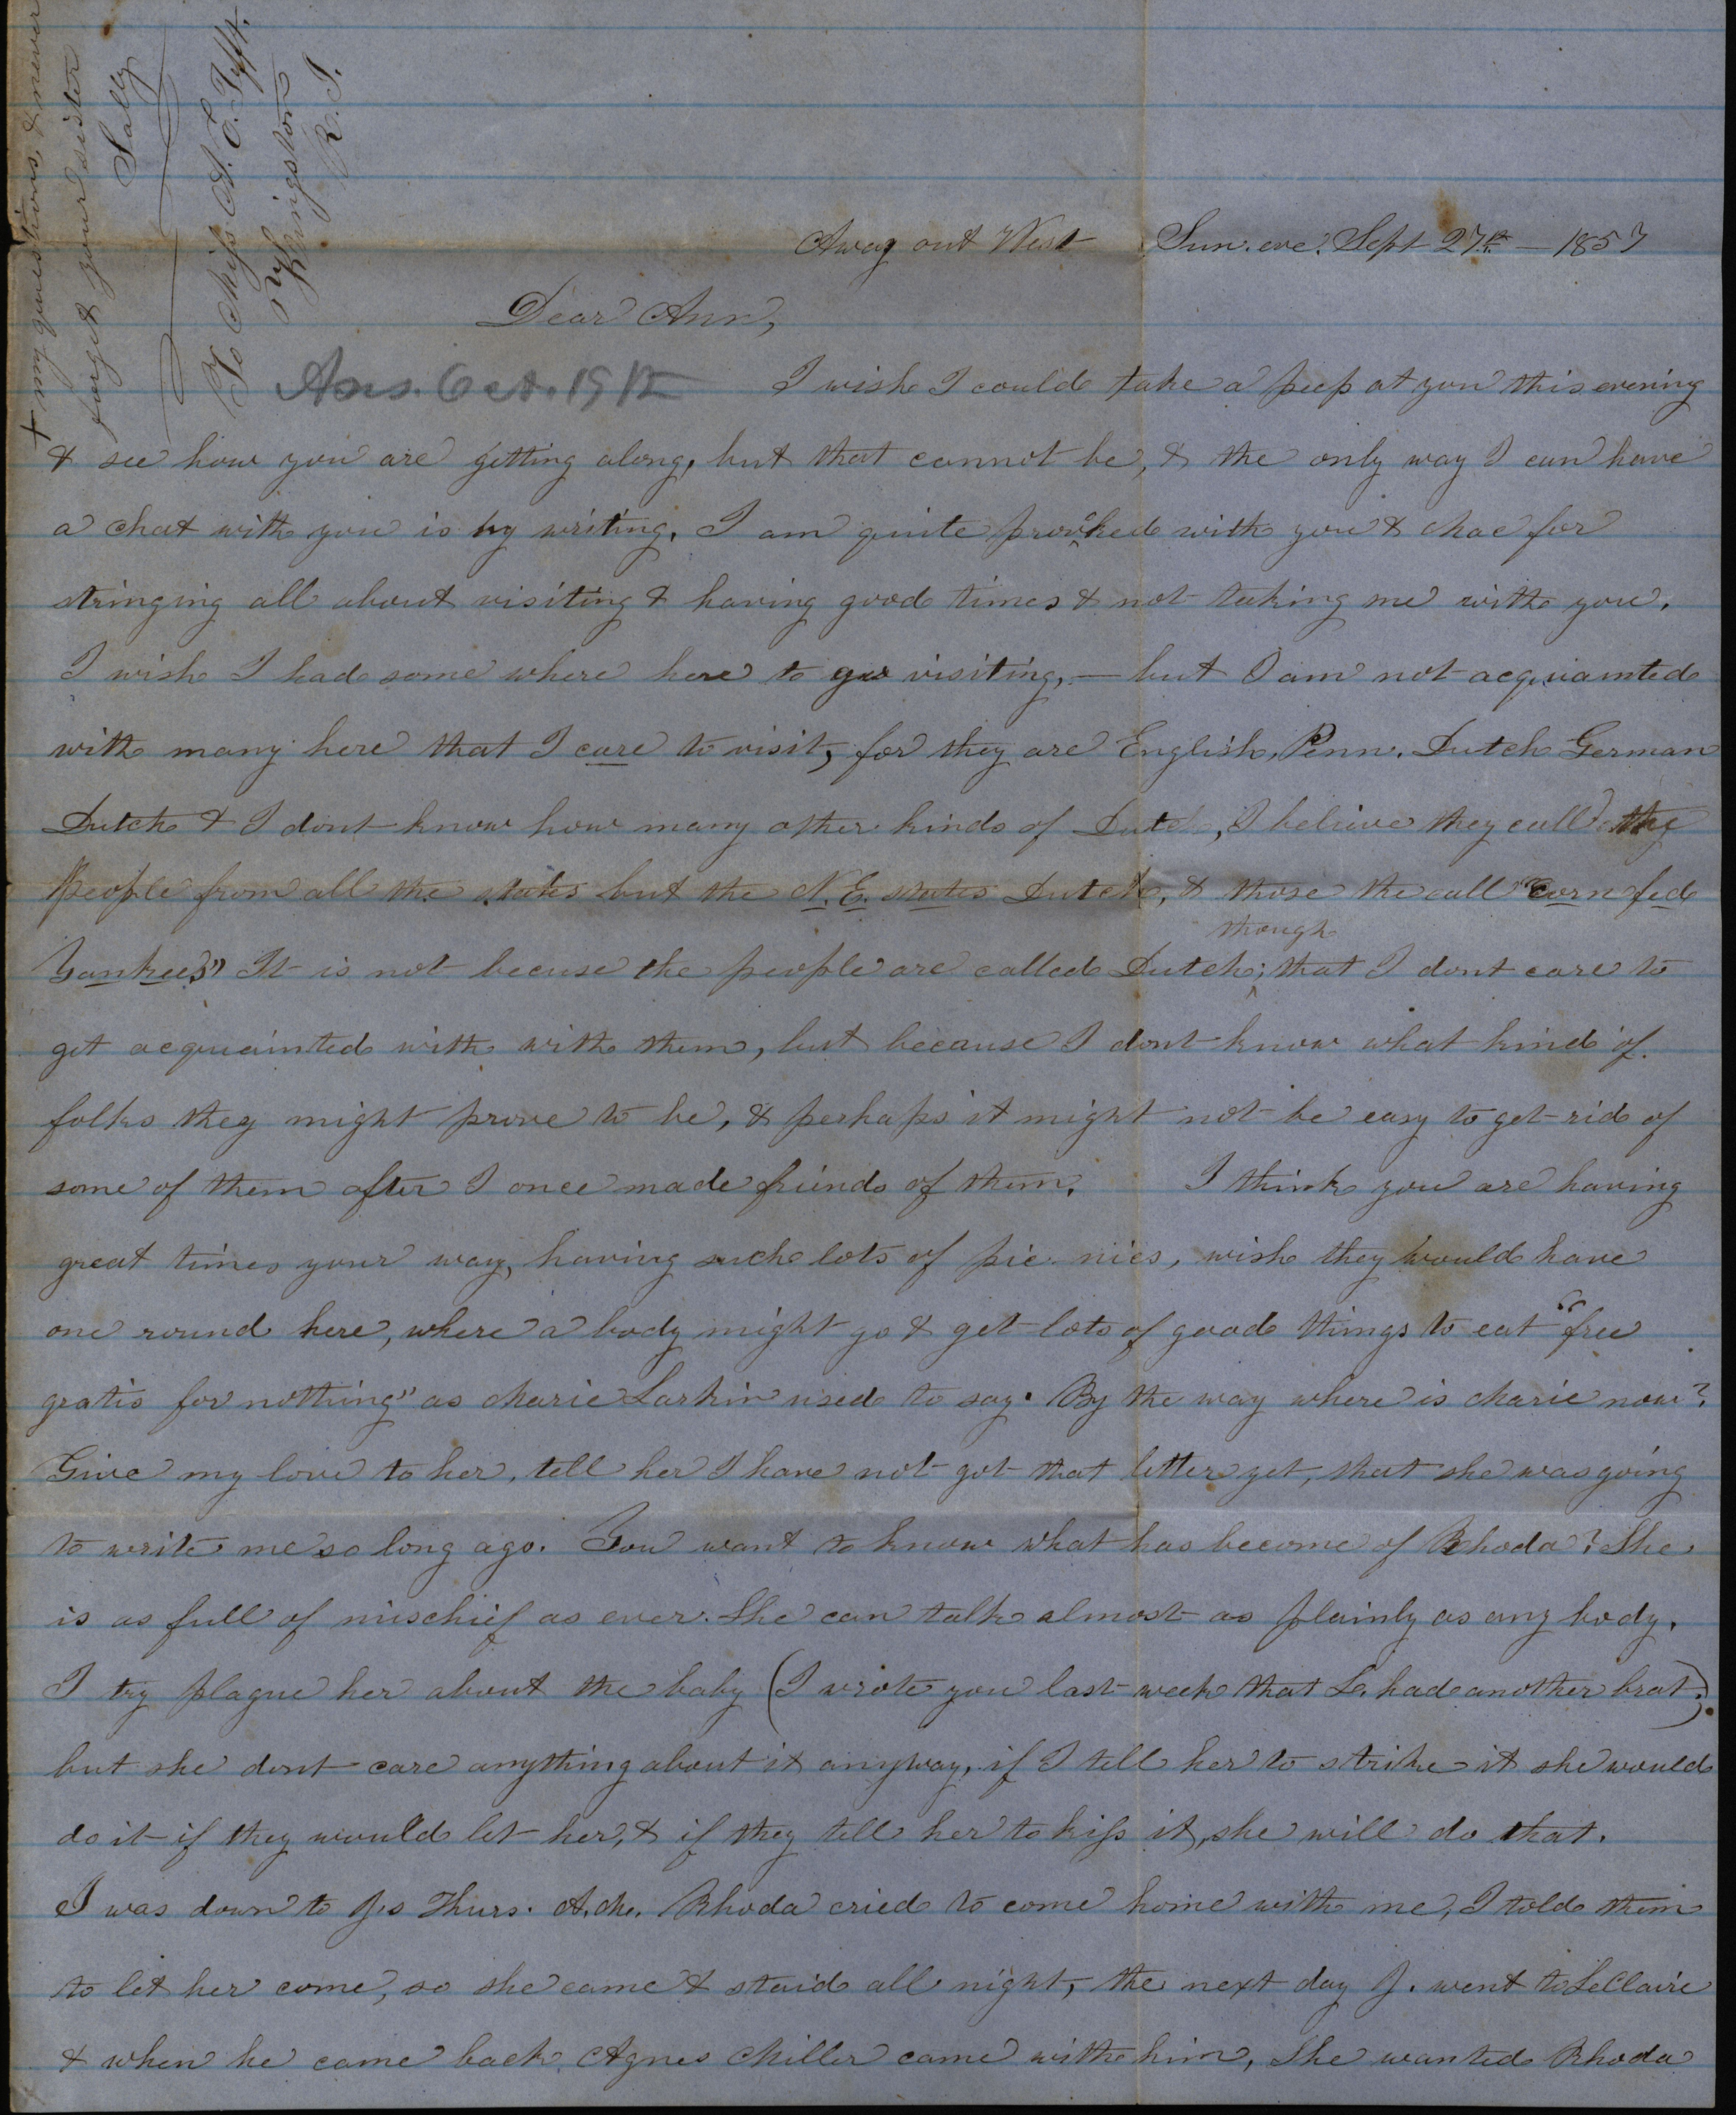 + my questions, & never
forget your sister
Sally
To Miss A. E. Tefft.
Kingston
R. I.
Away out West Sun. eve. Sept 27th — 1857
Dear Ann,
Ans. Oct. 19th
I wish I could take a peep at you this evening
& see how you are getting along, but that cannot be, & the only way I can have
a chat with you is by writing. I am quite provoked with you & Mae for
stringing all about visiting & having good times & not taking me with you.
I wish I had some where here to go visiting, — but I am not acquainted
with many here that I care to visit, for they are English, Penn. Dutch German
Dutch & I dont know how many other kinds of Dutch, I believe they call the
people from all the states but the N. E. states Dutch, & those the call "corn fed
Yankees" It is not becuse the people are called Dutch; though that I dont care to
get acquainted with with them, but because I dont know what kind of
folks they might prove to be, & perhaps it might not be easy to get rid of
some of them after I once made friends of them. I think you are having
great times your way, having such lots of pic nics, wish they would have
one round here, where a body might go & get lots of good things to eat "free
gratis for nothing" as Marie Larkin used to say. By the way where is Marie now?
Give my love to her, tell her I have not got that letter yet, that she was going
to write me so long ago. You want to know what has become of Rhoda? She
is as full of mischief as ever. She can talk almost as plainly as any body.
I try plague her about the baby (I wrote you last week that L. had another brat).
but she dont care anything about it anyway, if I tell her to strike it she would
do it if they would let her, & if they tell her to kiss it, she will do that.
I was down to J's Thurs. Rhoda cried to come home with me, I told them
to let her come, so she came & staid all night, the next day J. went to LeClaire
& when he came back Agnes Miller came with him, She wanted Rhoda